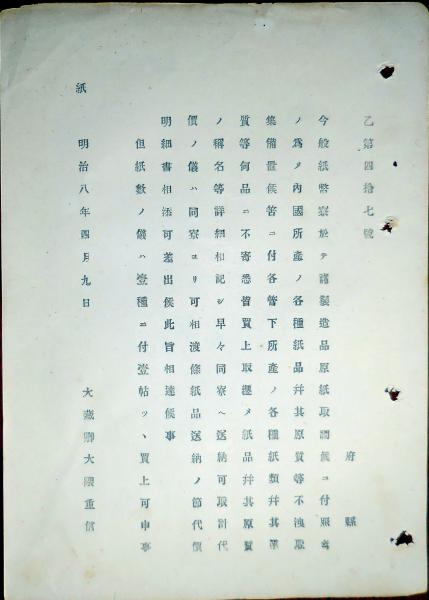 乙第四拾七號
府縣
今般紙幣寮於テ諸製造品原紙取調候ニ付照考
ノ爲メ內國所產ノ各種紙品幷其原質等不洩取
集備置候筈ニ付各管下所產ノ各種紙類幷其原
質等何品ニ不寄悉皆買上取纒メ紙品幷其原質
ノ稱名等詳細相記シ早々同寮ヘ送納可取計代
價ノ儀ハ同寮ヨリ可相渡條紙品送納ノ節代價
明細書相添可差出候此旨相達候事
但紙數ノ儀ハ壹種ニ付壹帖ツヽ買上可申事
明治八年四月九日
大藏卿大隈重信
紙